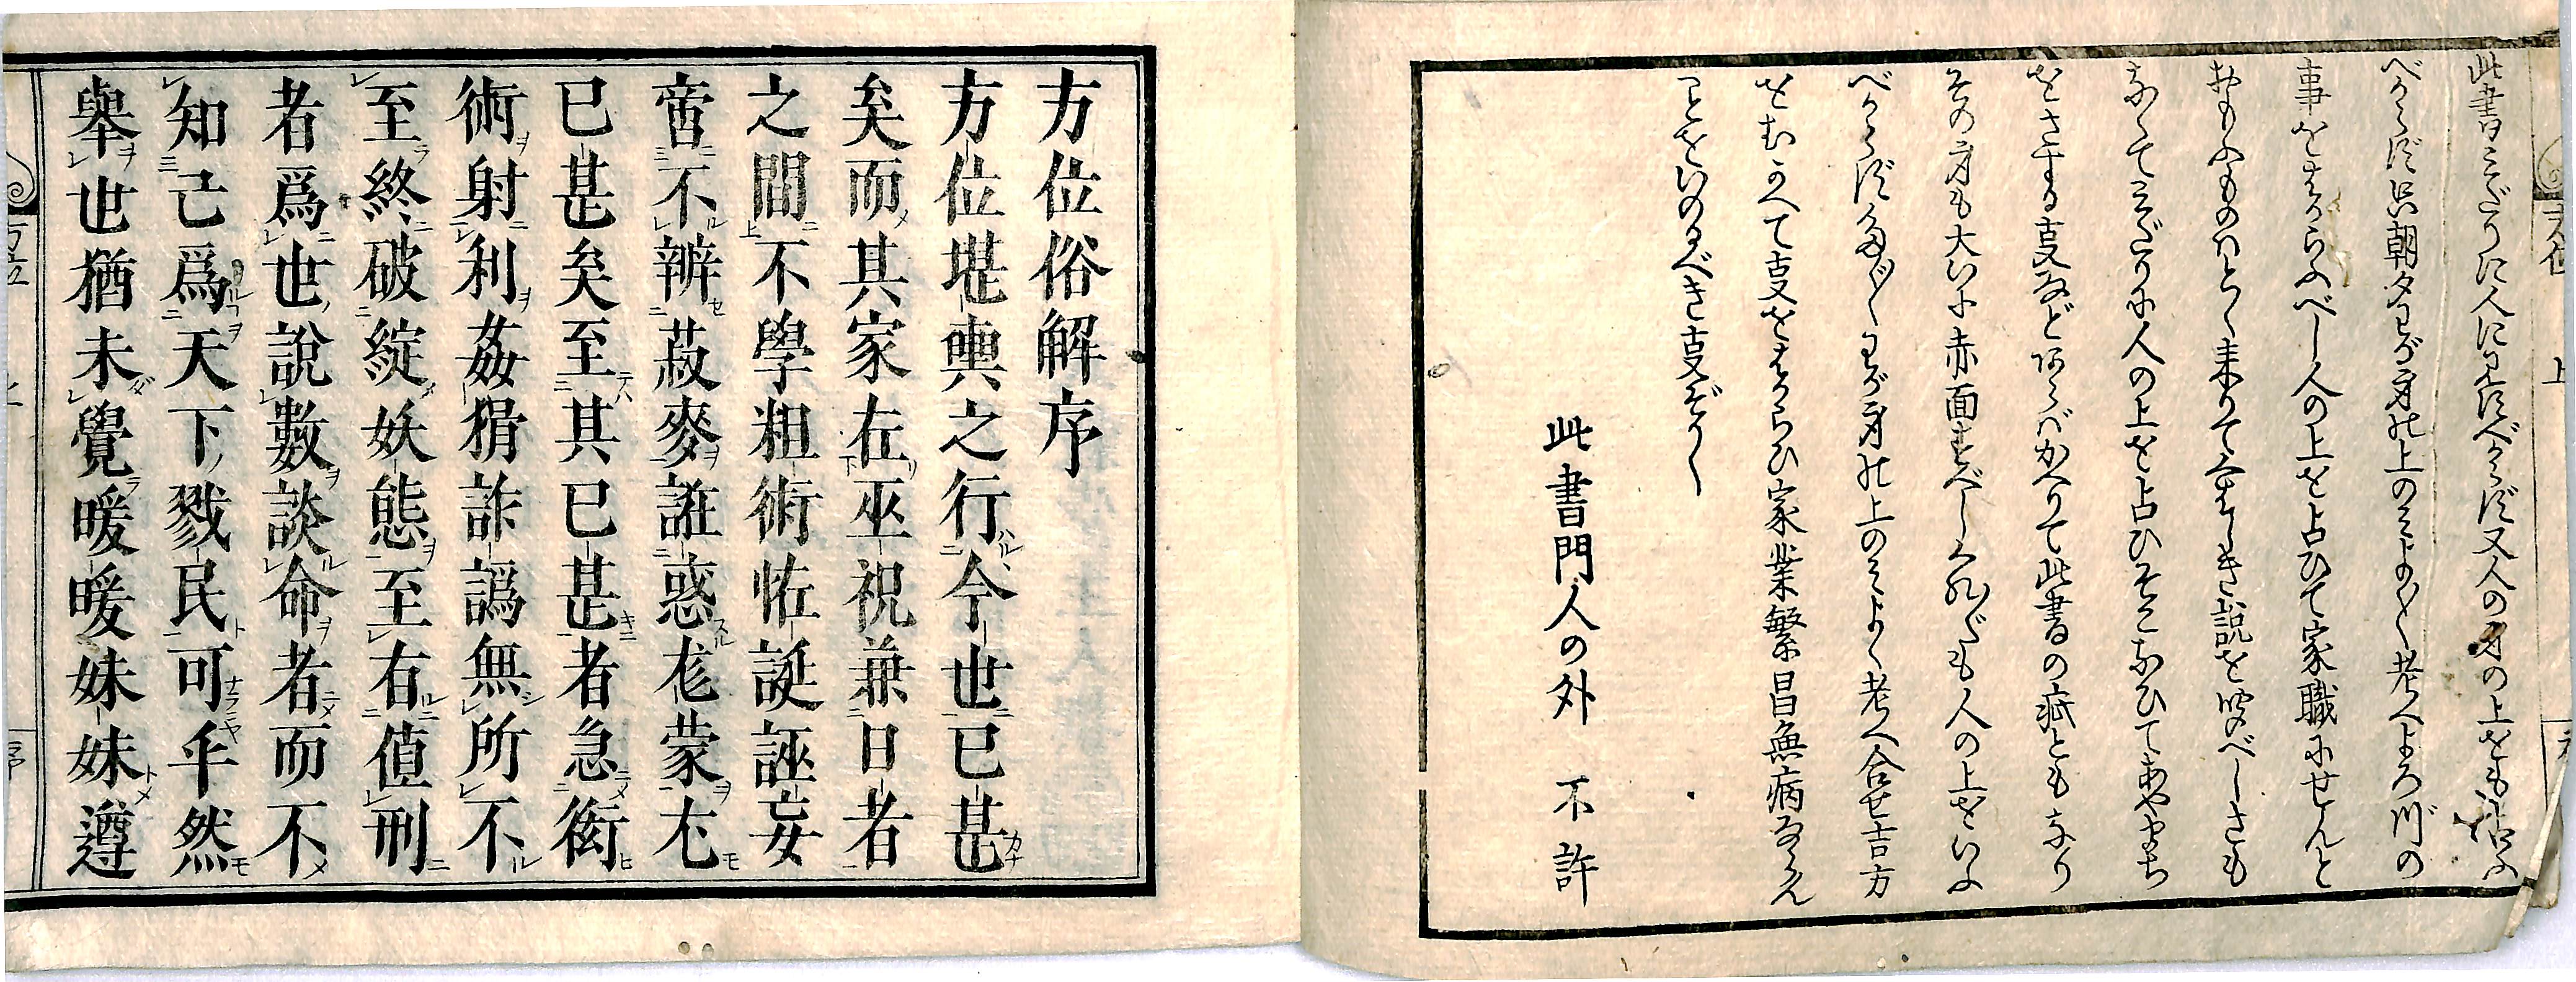 此書みだりに人に見すべからず又人の身の上をも占ふ
べからず只朝夕わが身の上のみよく〱考へよろづの
事をはからふべし人の上を占ひて家職にせんと
おもふものはとく来りてくはしき説を受べしさも
なくてみだりに人の上を占ひそこなひてあやまち
をさする事などあらばかへりて此書の疵ともなり
その身も大いに赤面すべしくれ〲も人の上をいふ
べからずたゞ〱わが身の上のみよく考へ合せ吉方
をむかへて事をはからひ家業繁昌無病ならん
ことをいのるべき事ぞかし
此書門人の外 不許
方位俗解序
方位堪輿之行今世已甚
矣而其家在巫祝兼日者
之間不學粗術恠誕誣妄
啻不辨菽麥誑惑尨蒙尢
已甚矣至其已甚者急衒
術射利姦猾詐譌無所不
至終破綻妖態至右値刑
者爲世說數談命者而不
知己爲天下戮民可乎然
擧世猶未覺暖暖姝姝遵